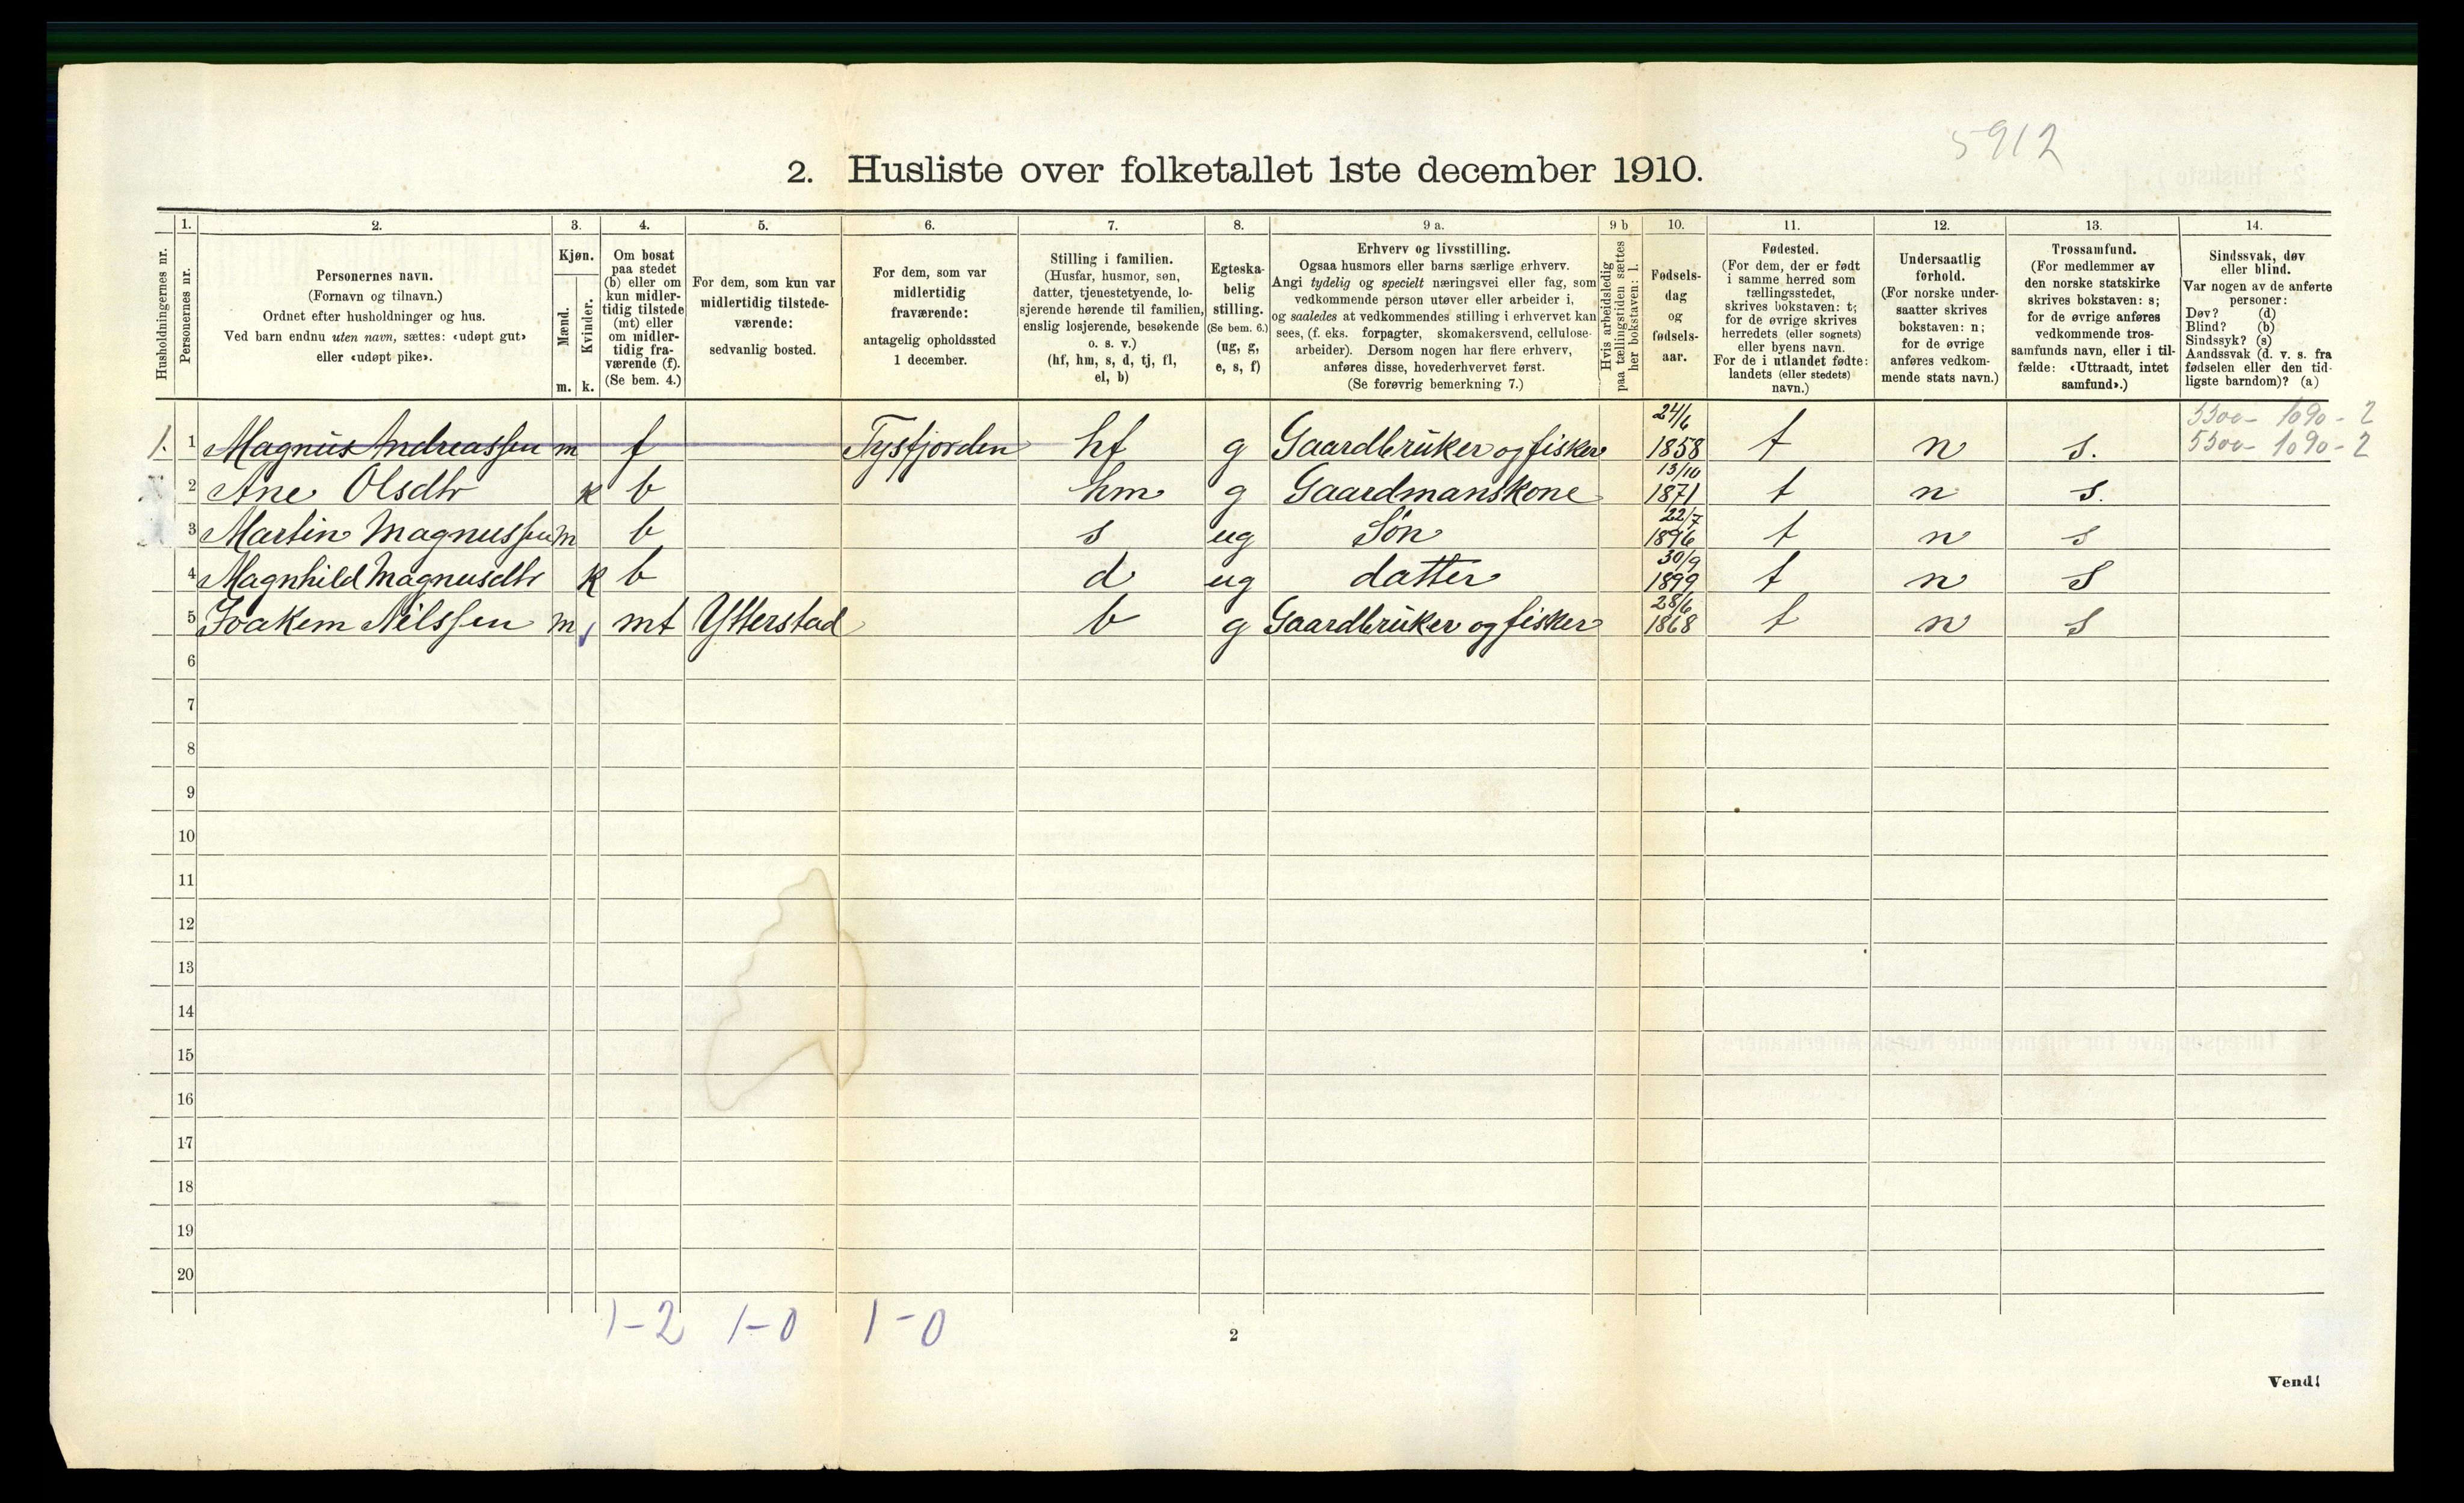 5912
2. Husliste over folketallet 1ste december 1910.
Husholdningernes nr.
1.
Personernes nr.
2.
Personernes navn.
(Fornavn og tilnavn.)
Ordnet efter husholdninger og hus.
Ved barn endnu uten navn, sættes: «udøpt gut»
eller «udøpt pike».
3.
Kjøn.
Mænd.
m.
Kvinder.
k.
4.
Om bosat
paa stedet
(b) eller om
kun midler-
tidig tilstede
(mt) eller
om midler-
tidig fra-
værende (f).
(Se bem. 4.)
5.
For dem, som kun var
midlertidig tilstede-
værende:
sedvanlig bosted.
6.
For dem, som var
midlertidig
fraværende:
antagelig opholdssted
1 december.
7.
Stilling i familien.
(Husfar, husmor, søn,
datter, tjenestetyende, lo-
sjerende hørende til familien,
enslig losjerende, besøkende
o. s. v.)
(hf, hm, s, d, tj, fl,
el, b)
8.
Egteska-
belig
stilling.
(Se bem. 6.)
(ug, g,
e, s, f)
9 a.
Erhverv og livsstilling.
Ogsaa husmors eller barns særlige erhverv.
Angi tydelig og specielt næringsvei eller fag, som
vedkommende person utøver eller arbeider i,
og saaledes at vedkommendes stilling i erhvervet kan
sees, (f. eks. forpagter, skomakersvend, cellulose-
arbeider). Dersom nogen har flere erhverv,
anføres disse, hovederhvervet først.
(Se forøvrig bemerkning 7.)
9 b
Hvis arbeidsledig
paa tællingstiden sættes
her bokstaven: l.
10.
Fødsels-
dag
og
fødsels-
aar.
11.
Fødested.
(For dem, der er født
i samme herred som
tællingsstedet,
skrives bokstaven: t;
for de øvrige skrives
herredets (eller sognets)
eller byens navn.
For de i utlandet fødte:
landets (eller stedets)
navn.)
12.
Undersaatlig
forhold.
(For norske under-
saatter skrives
bokstaven: n;
for de øvrige
anføres vedkom-
mende stats navn.)
13.
Trossamfund.
(For medlemmer av
den norske statskirke
skrives bokstaven: s;
for de øvrige anføres
vedkommende tros-
samfunds navn, eller i til-
fælde: «Uttraadt, intet
samfund».)
14.
Sindssvak, døv
eller blind.
Var nogen av de anførte
personer:
Døv? (d)
Blind? (b)
Sindssyk? (s)
Aandssvak (d. v. s. fra
fødselen eller den tid-
ligste barndom)? (a)
5500- 1090-2
1. 1 Magnus Andreassen m f Tysfjorden hf g Gaardbruker og fisker 24/6 1858 t n s. 5500- 1090-2
2 Ane Olsdtr k b hm g Gaardmanskone 13/10 1871 t n s.
3 Martin Magnussen m b s ug Søn 22/7 1896 t n s
4 Magnhild Magnusdtr k b d ug datter 30/9 1899 t n s
5 Joakem Nilssen m mt Ytterstad b g Gaardbruker og fisker 28/6 1868 t n s
6
7
8
9
10
11
12
13
14
15
16
17
18
19
20
1-2 1-0 1-0
2
Vend!